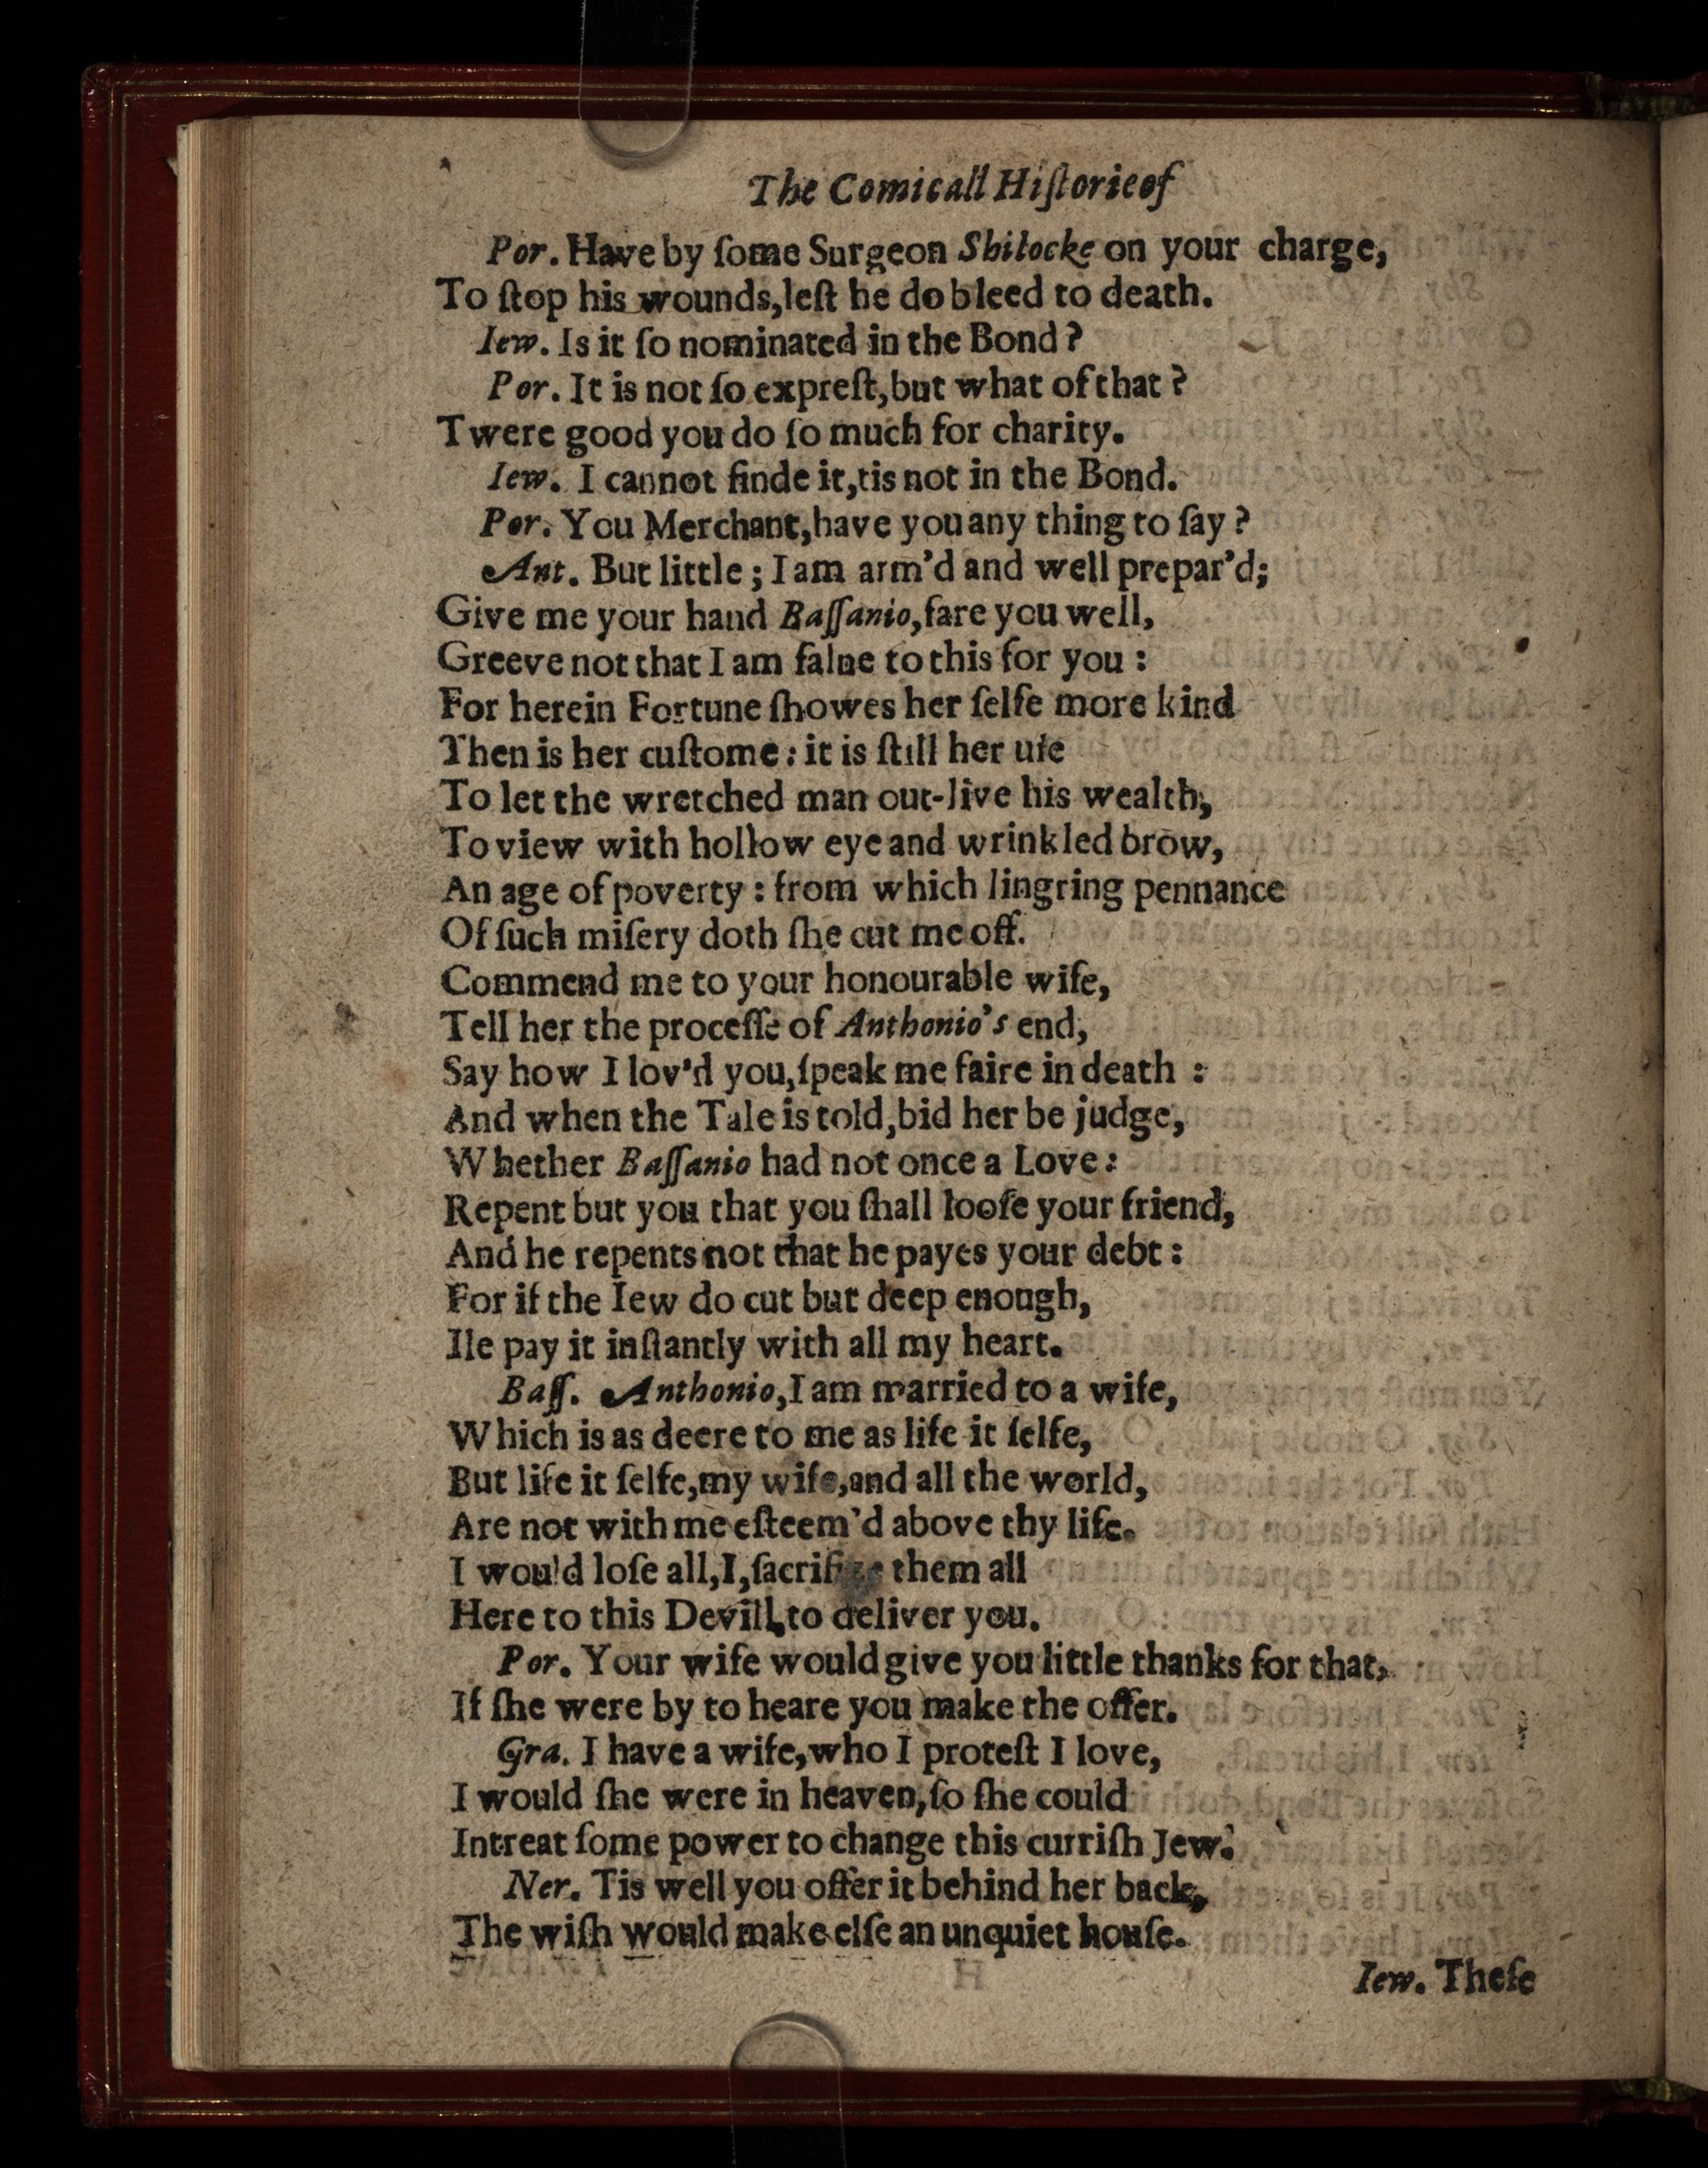 The Comicall Hiſtorie of
Por. Have by ſome Surgeon Shilocke on your charge,
To ſtop his wounds, leſt he do bleed to death.
Iew. Is it ſo nominated in the Bond?
Por. It is not ſo expreſt, but what of that?
Twere good you do ſo much for charity.
Iew. I cannot finde it, tis not in the Bond.
Por. You Merchant, have you any thing to ſay?
Ant. But little; I am arm'd and well prepar'd;
Give me your hand Baſſanio, fare you well,
Greeve not that I am falne to this for you:
For herein Fortune ſhowes her ſelfe more kind
Then is her cuſtome: it is ſtill her uſe
To let the wretched man out-live his wealth,
To view with hollow eye and wrinkled brow,
An age of poverty: from which lingring pennance
Of ſuch miſery doth ſhe cut me off.
Commend me to your honourable wife,
Tell her the proceſſe of Anthonio's end,
Say how I lov'd you, ſpeak me faire in death:
And when the Tale is told, bid her be judge,
Whether Baſſanio had not once a Love:
Repent but you that you ſhall looſe your friend,
And he repents not that he payes your debt:
For if the Iew do cut but deep enough,
Ile pay it inſtantly with all my heart.
Baſſ. Anthonio, I am married to a wife,
Which is as deere to me as life it ſelfe,
But life it ſelfe, my wife, and all the world,
Are not with me eſteem'd above thy life.
I would loſe all, I, ſacrifize them all
Here to this Devill, to deliver you.
Por. Your wife would give you little thanks for that,
If ſhe were by to heare you make the offer.
Gra. I have a wife, who I proteſt I love,
I would ſhe were in heaven, ſo ſhe could
Intreat ſome power to change this curriſh Jew.
Ner. Tis well you offer it behind her back,
The wiſh would make elſe an unquiet houſe.
Iew. Theſe